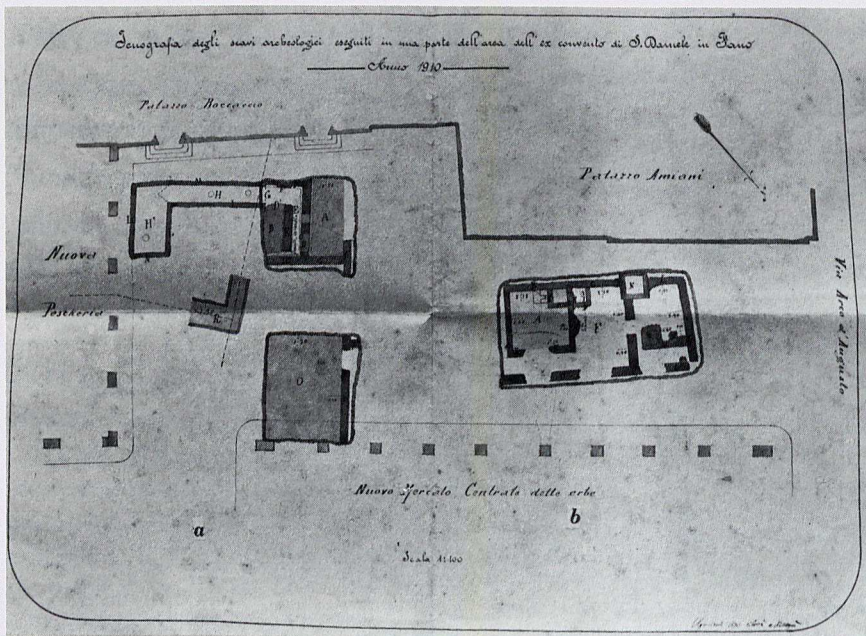 Icnografia degli scavi archeologici eseguiti in una parte dell'area dell'ex convento di S. Daniele in Fano
Anno 1910
Palazzo Boccaccio
Palazzo Amiani
H
G
A
H'
B
Nuova
Pescheria
R
O
A
F
Via Arco d'Augusto
Nuovo Mercato Centrale delle erbe
a
b
Scala 1:100